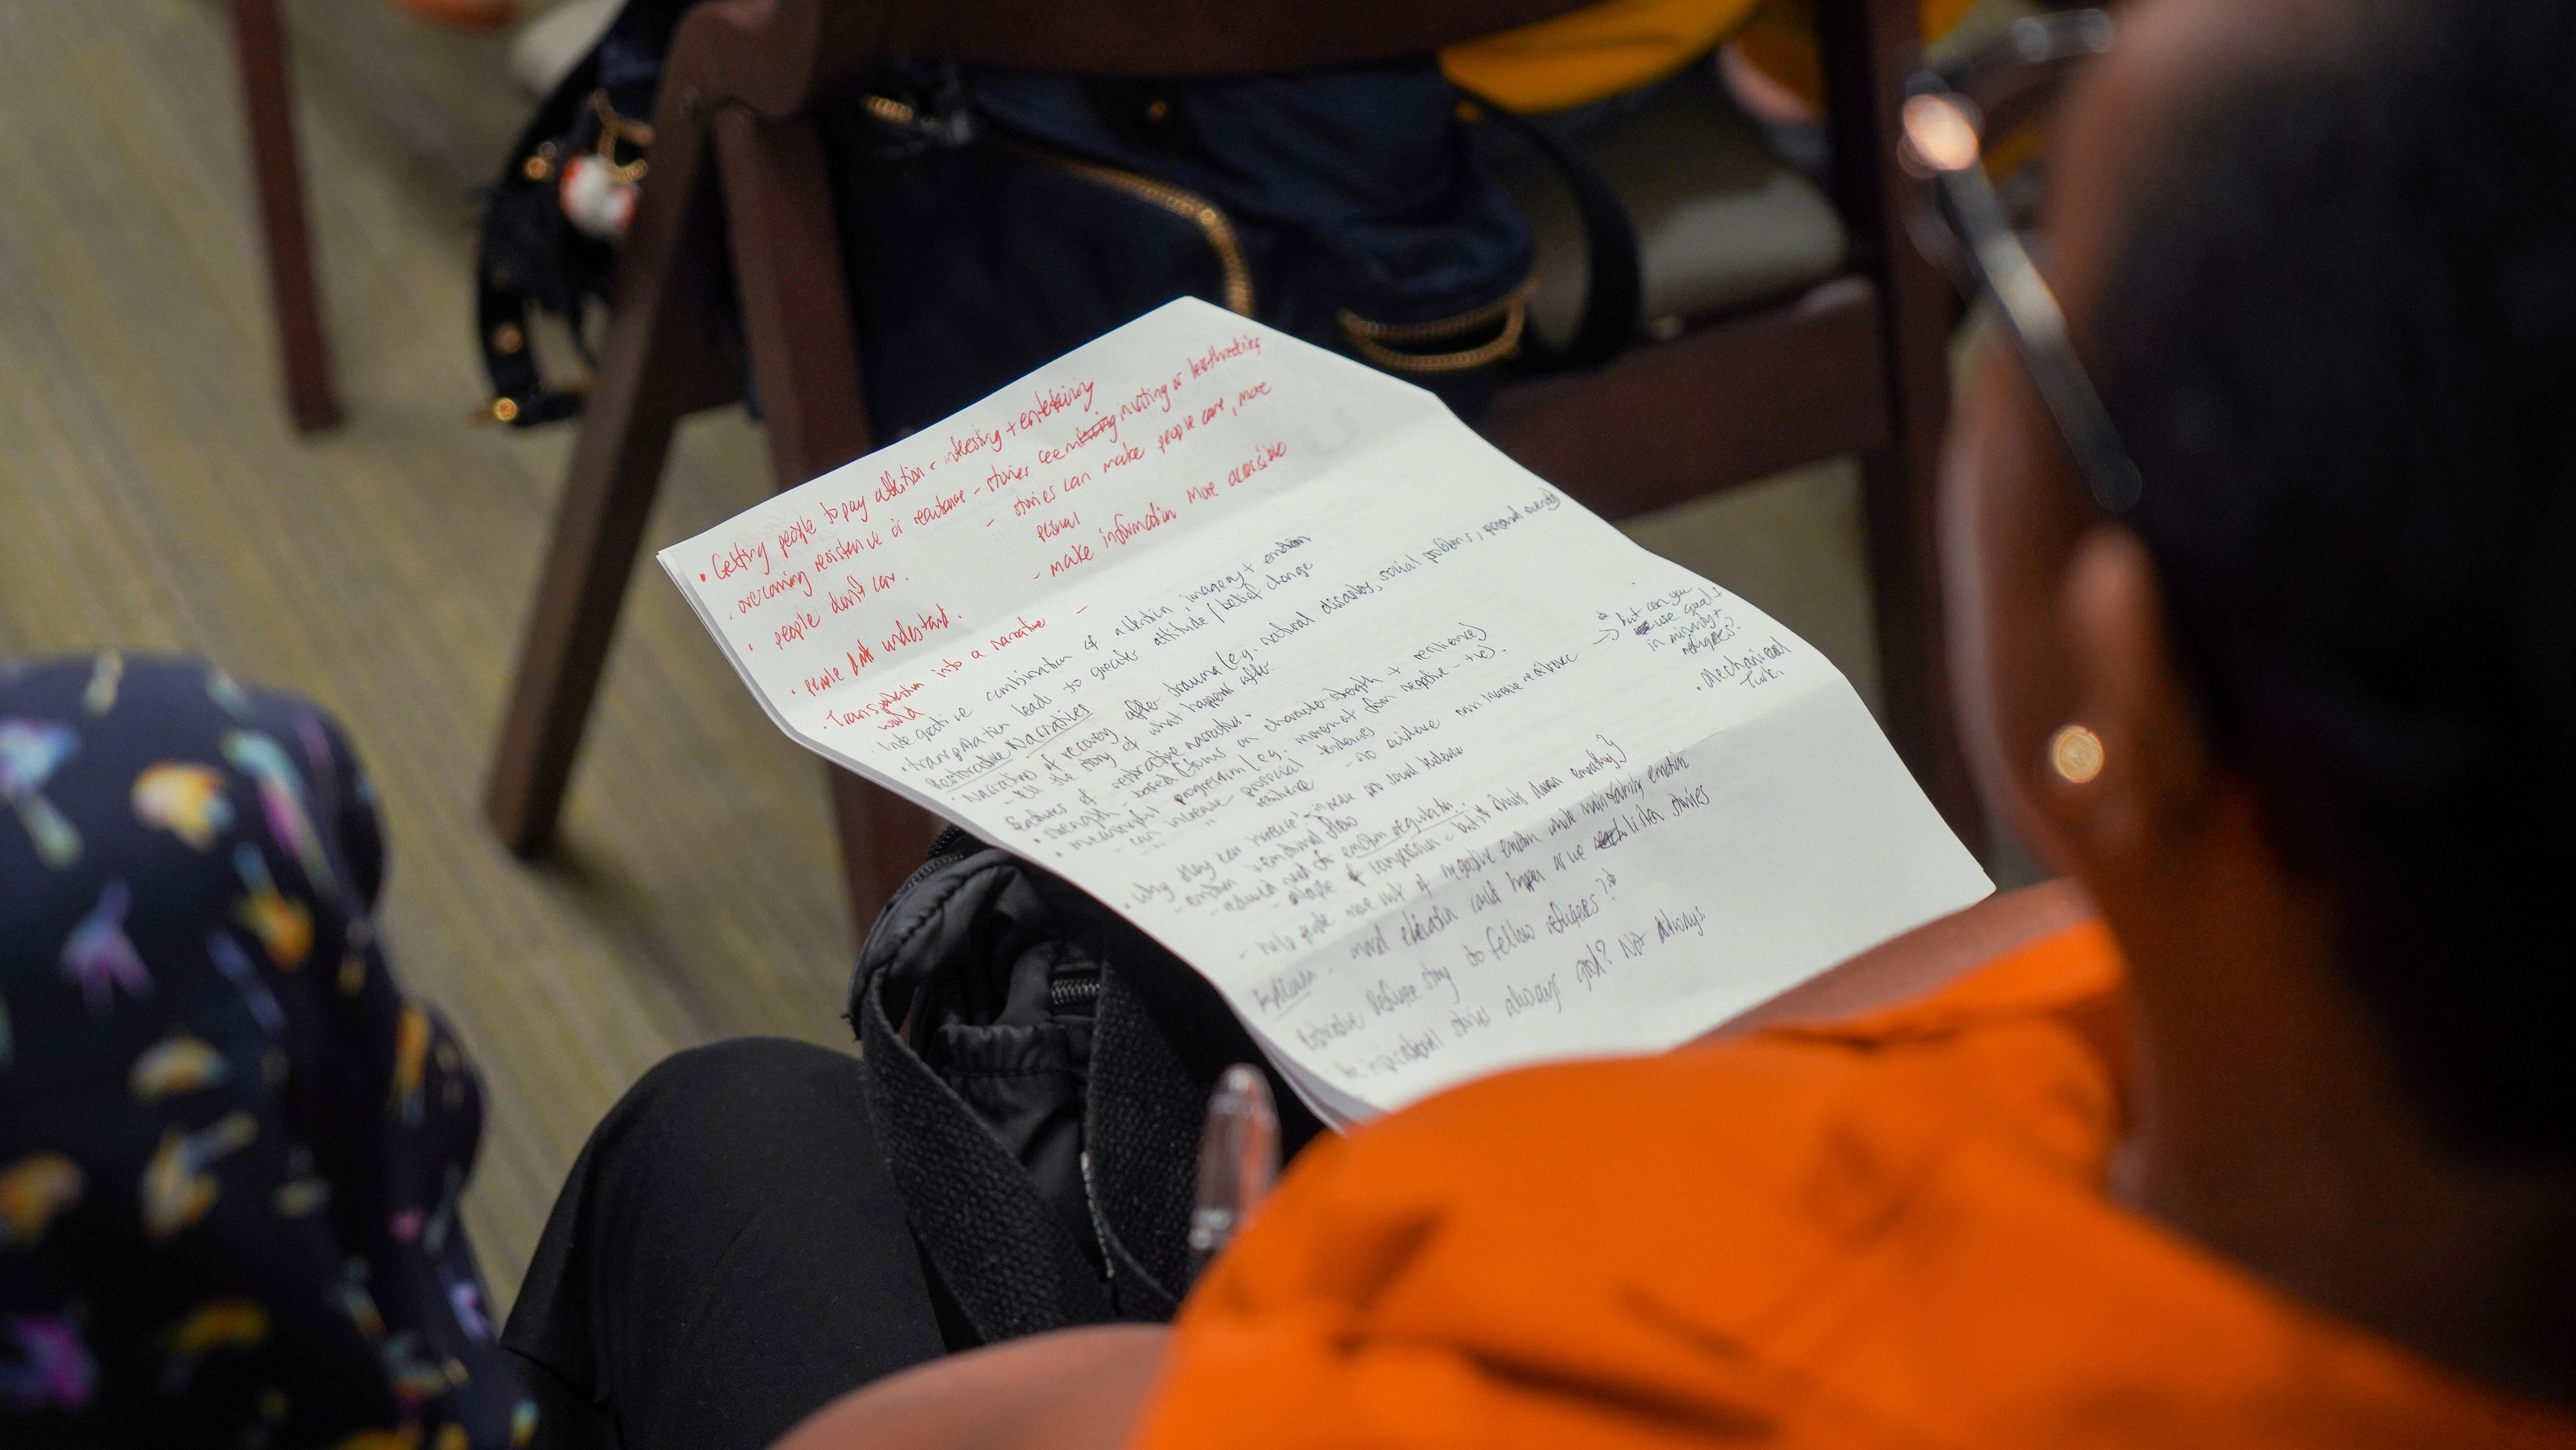 • Getting people to pay attention - interesting + entertaining
• overcoming resistance or reactance - stories seem inviting or less threatening
• people don't care. - stories can make people care, more
personal
• people don't understand. - make information more accessible
• Transportation into a narrative -
world
Integrative combination of attention, imagery + emotion
• transportation leads to greater attitude / belief change
Restorative Narratives
• Narratives of recovery after trauma (e.g. natural disasters, social problems, personal events)
- tell the story of what happens after
Features of restorative narratives.
• strength - based (focus on character strength + resilience)
• meaningful progression (e.g. movement from negative - +ve).
- can increase prosocial tendencies
- " " resilience - no evidence can increase resilience
→ * but can you
use goals
in minority +
refugees?
• Mechanical
Turk.
• Why they can
- emotion + emotional flow
- reduced need for emotion regulation
- collapse of compassion - but it shuts down empathy?
- help people move out of negative emotion while maintaining emotion
- moral elevation could happen as we listen stories
restorative refugee story to fellow refugees? *
stories always good? Not always